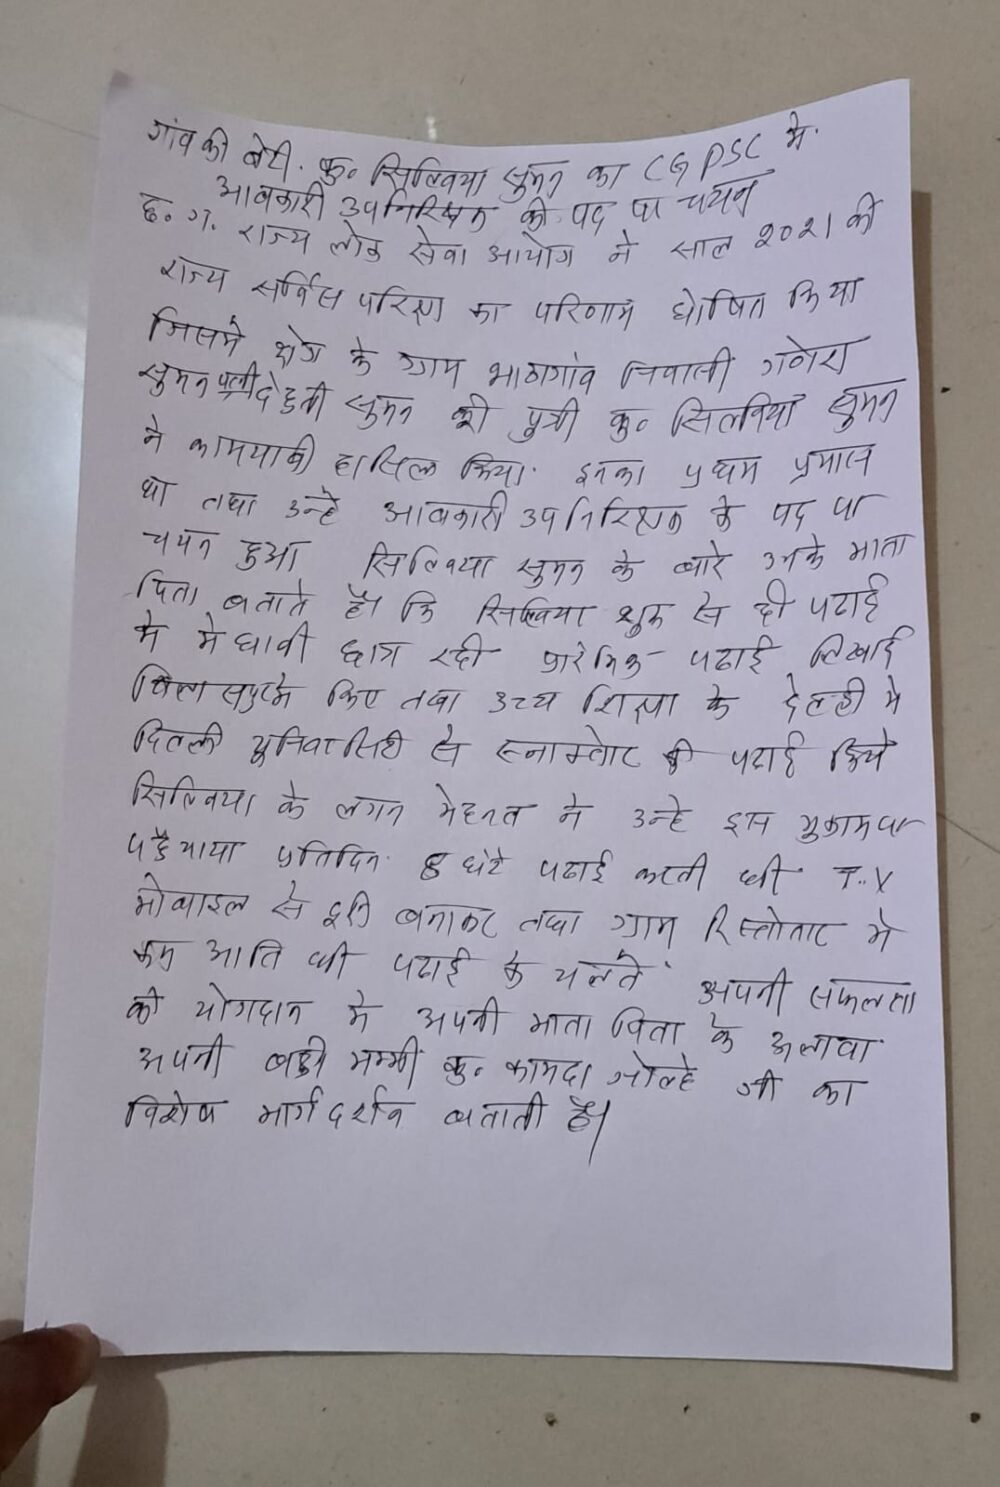 गांव की बेटी. कु० सिल्विया सुमन का CGPSC मे.
आबकारी उपनिरिक्षक की पद पर चयन
छ. ग. राज्य लोक सेवा आयोग ने साल 2021 की
राज्य सर्विस परिक्षा का परिणाम घोषित किया
जिसमे क्षेत्र के ग्राम भाठागांव निवासी गणेश
सुमन पत्नी देहुती सुमन की पुत्री कु० सिलविया सुमन
ने कामयाबी हासिल किया. इनका प्रथम प्रयास
था तथा उन्हे आबकारी उपनिरिक्षक के पद पर
चयन हुआ सिल्विया सुमन के बारे उनके माता
पिता बताते है। कि सिल्विया शुरू से ही पढाई
मे मेघावी छात्र रही प्रारंभिक पढाई लिखाई
बिलासपुरमे किए तथा उच्च शिक्षा के देलही मे
दिल्ली युनिवर्सिटी से स्नातकोत्तर की पढाई किये
सिल्विया के लगन मेहनत ने उन्हे इस मुकाम पर
पहुँचाया प्रतिदिन 8 घंटे पढाई करती थी T.V
मोबाइल से दूरी बनाकर तथा गाम रिस्तोदार मे
कम आति थी पढाई के चलते. अपनी सफलता
की योगदान मे अपनी माता पिता के अलावा
अपनी बड़ी मम्मी कु० कामदा जोल्हे जी का
विशेष मार्गदर्शन बताती है।